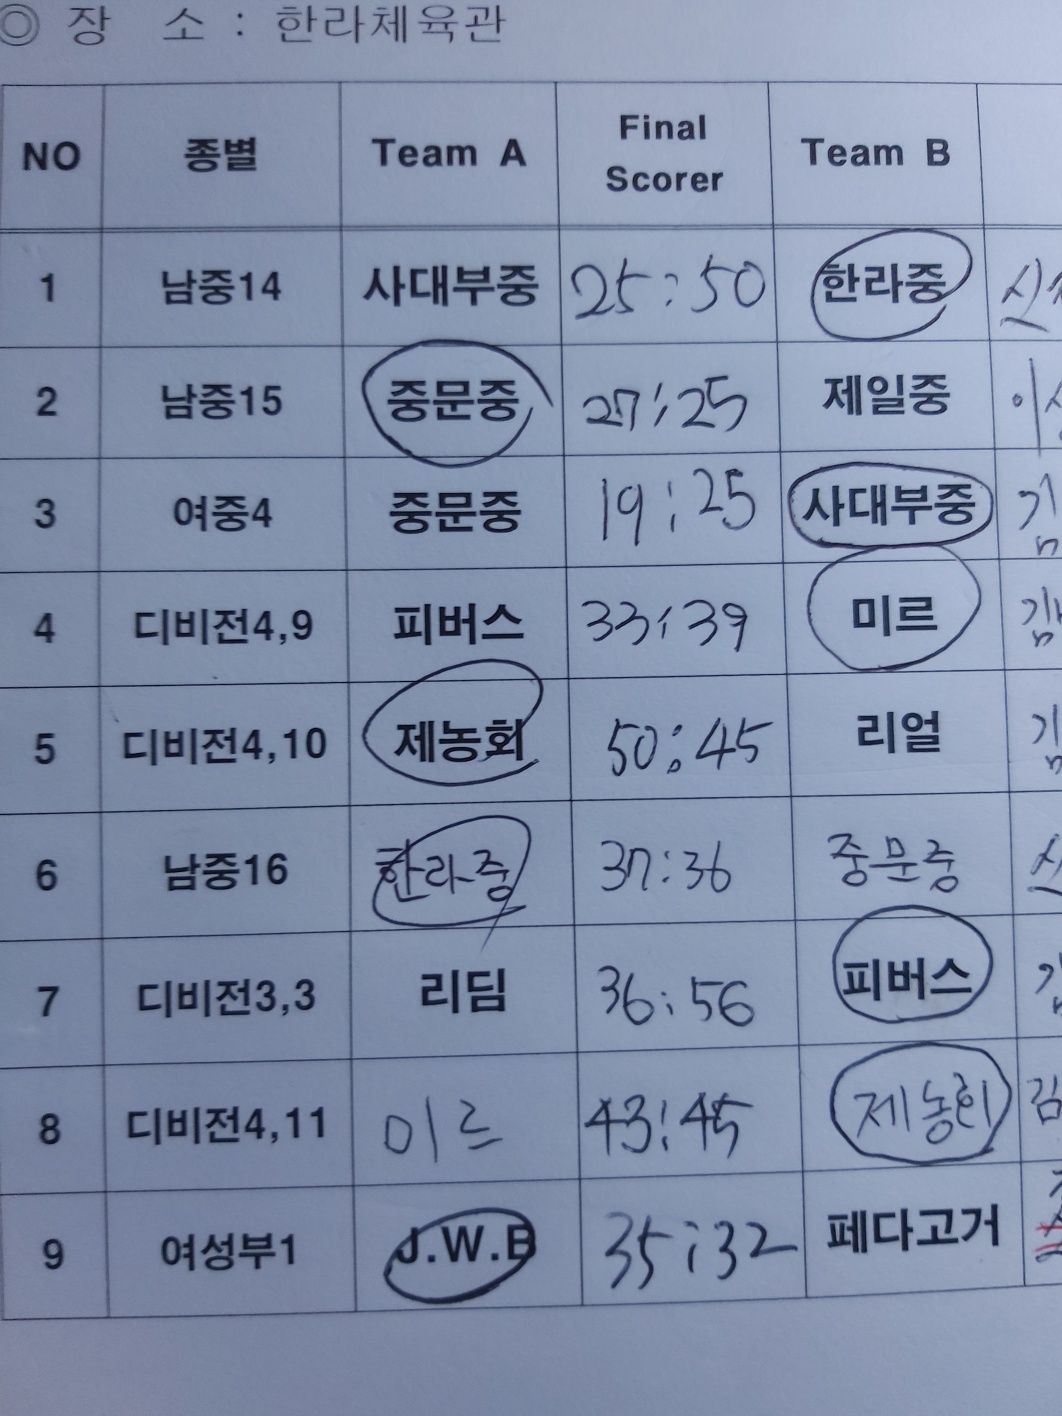 ◎ 장 소 : 한라체육관
NO 종별 Team A Final Scorer Team B
1 남중14 사대부중 25:50 한라중
2 남중15 중문중 27:25 제일중
3 여중4 중문중 19:25 사대부중
4 디비전4,9 피버스 33:39 미르
5 디비전4,10 제농회 50:45 리얼
6 남중16 한라중 37:36 중문중
7 디비전3,3 리딤 36:56 피버스
8 디비전4,11 미르 43:45 제농회 김
9 여성부1 J.W.B 35:32 페다고거